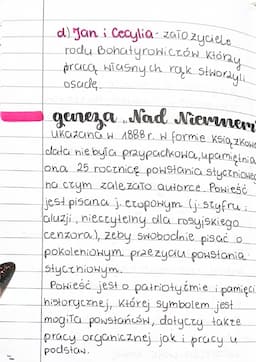 d) Jan i Cecylia - założyciele
rodu Bohatyrowiczów którzy
pracą własnych rąk stworzyli
osadę.
geneza „Nad Niemnem"
ukazana w 1888 r. w formie książkowej
data nie była przypadkowa, upamiętnia
ona 25 rocznicę powstania styczniowego
na czym zależało autorce. Powieść
jest pisana j. ezopowym (j. szyfru i
aluzji, nieczytelny dla rosyjskiego
cenzora), żeby swobodnie pisać o
pokoleniowym przeżyciu powstania
styczniowym.
Powieść jest o patriotyzmie i pamięci
historycznej, której symbolem jest
mogiła powstańców, dotyczy także
pracy organicznej jak i pracy u
podstaw.